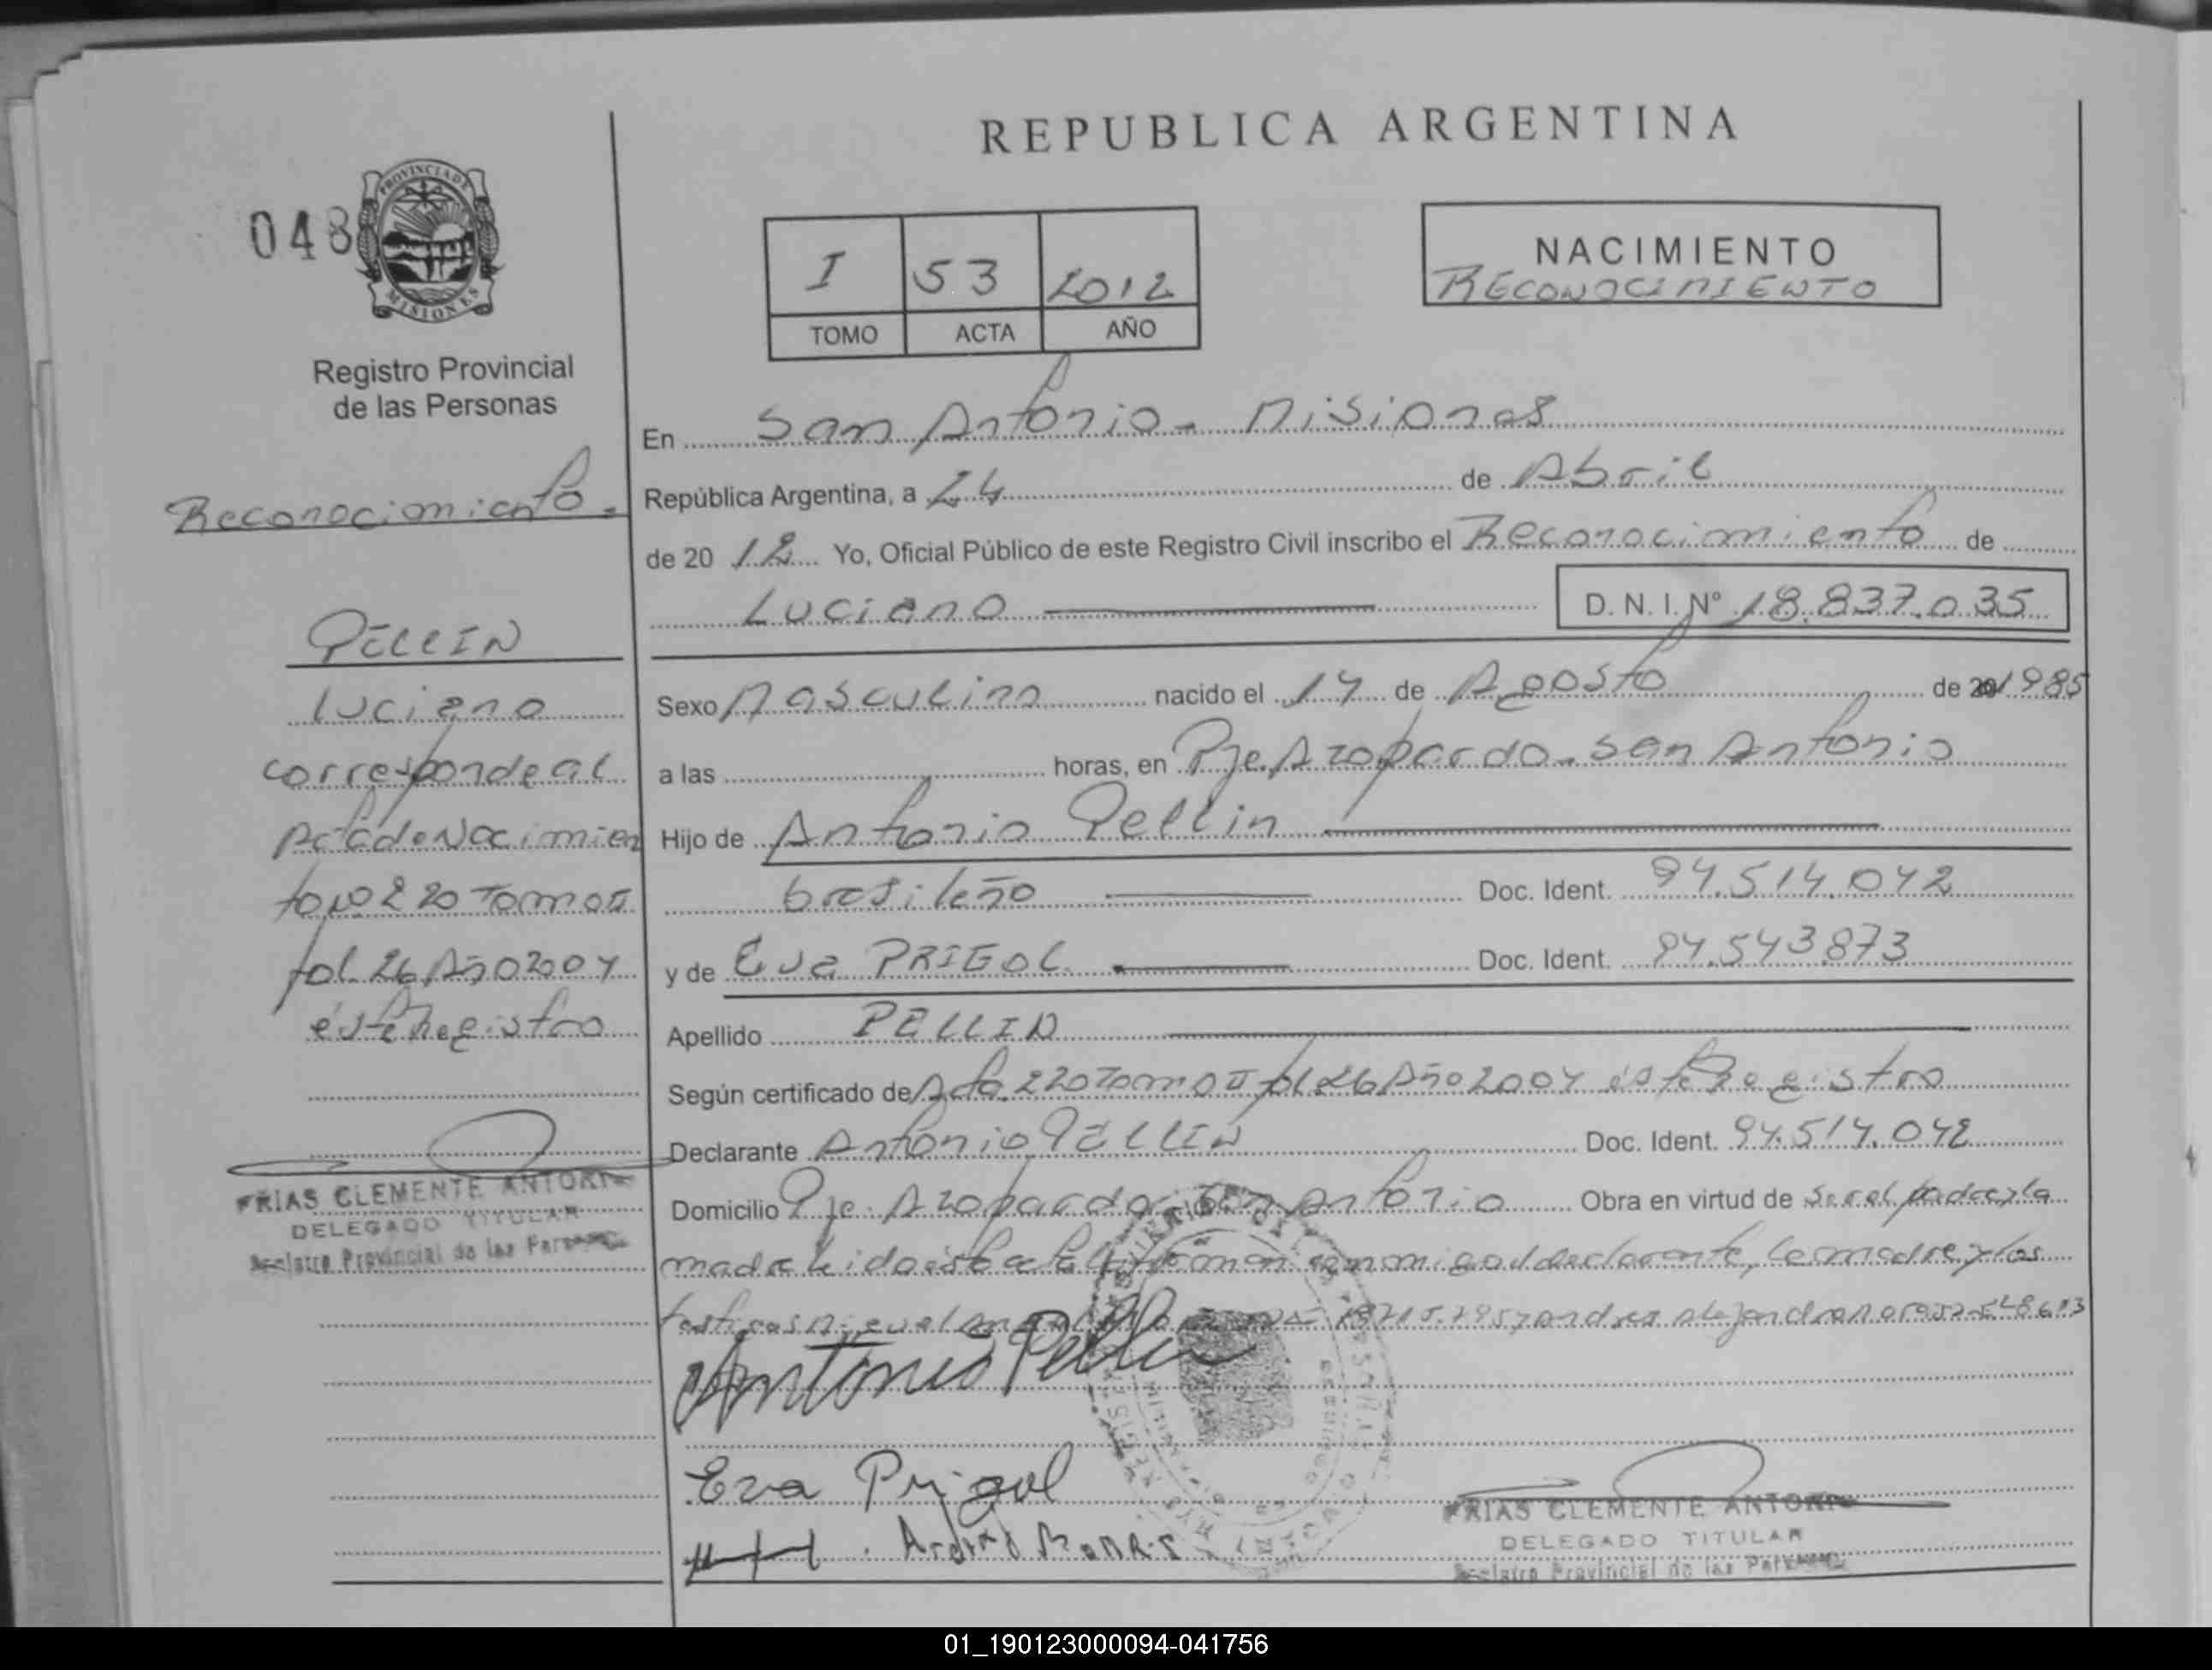 REPUBLICA ARGENTINA
048
PROVINCIA DE
MISIONES
I 53 2012
TOMO ACTA AÑO
NACIMIENTO
RECONOCIMIENTO
Registro Provincial
de las Personas
Reconocimiento.
PELLIN
Luciano
corresponde al
Acta de Nacimien
to Nº 220 Tomo II
fol 26 Año 2004
éste Registro
FRIAS CLEMENTE ANTONIO
DELEGADO TITULAR
Registro Provincial de las Personas
En San Antonio - Misiones
República Argentina, a 24 de Abril
de 20 12 Yo, Oficial Público de este Registro Civil inscribo el Reconocimiento de
Luciano D. N. I. Nº 18.837.035
Sexo Masculino nacido el 14 de Agosto de 1985
a las horas, en Pje. Azopardo - San Antonio
Hijo de Antonio Pellin
brasileño Doc. Ident. 94.514.042
y de Eva PRIGOL Doc. Ident. 94.543.873
Apellido PELLIN
Según certificado de Acta 220 Tomo II fol 26 Año 2004 éste Registro
Declarante Antonio PELLIN Doc. Ident. 94.514.042
Domicilio Pje. Azopardo San Antonio Obra en virtud de ser el padre y la
madre leida ésta acta la firman conmigo el declarante, la madre y los
testigos Miguel y Andres Alejandro
Antonio Pellin
Eva Prigol
FRIAS CLEMENTE ANTONIO
DELEGADO TITULAR
Registro Provincial de las Personas
01_190123000094-041756